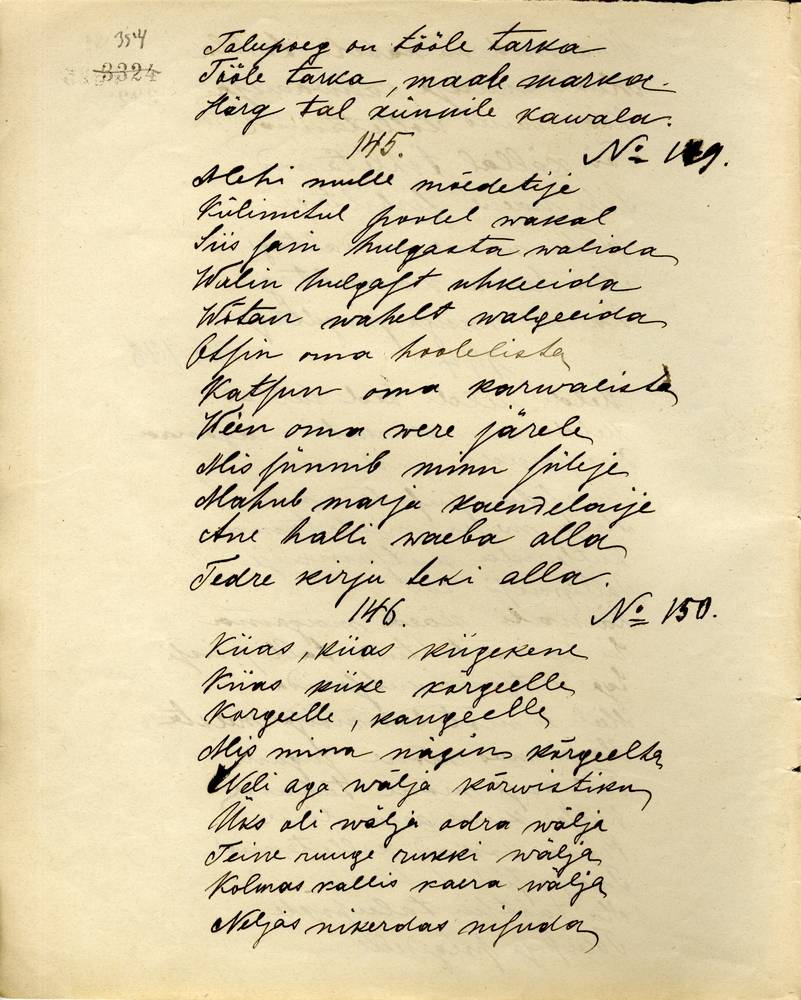 354
3324
Talupoeg on tööle tarka
Tööle tarka, maale marka.
Härg tal künnile kawala.
145. No 149.
Mehi mulle mõedetije
Külimitul poolel wakal
Siis sain hulgasta walida
Walin hulgast uhkeeida
Wõtan wahelt walgeeida
Otsin oma hoolelista
Katsun oma karwalista
Wiin oma were järele
Mis sünnib minu süleje
Mahub marja kaendelaije
Ane halli waeba alla
Tedre kirju teki alla.
146. No 150.
Kiias, kiias kiigekene
Kiias kiike kõrgeelle
Korgeelle, kaugeelle
Mis mina nägin kõrgeelta
Weli aga wälja kõrwistiku
Üks oli wälja odra wälja
Teine ruuge rukki wälja
Kolmas kallis kaera wälja
Neljas nikerdas nisuda